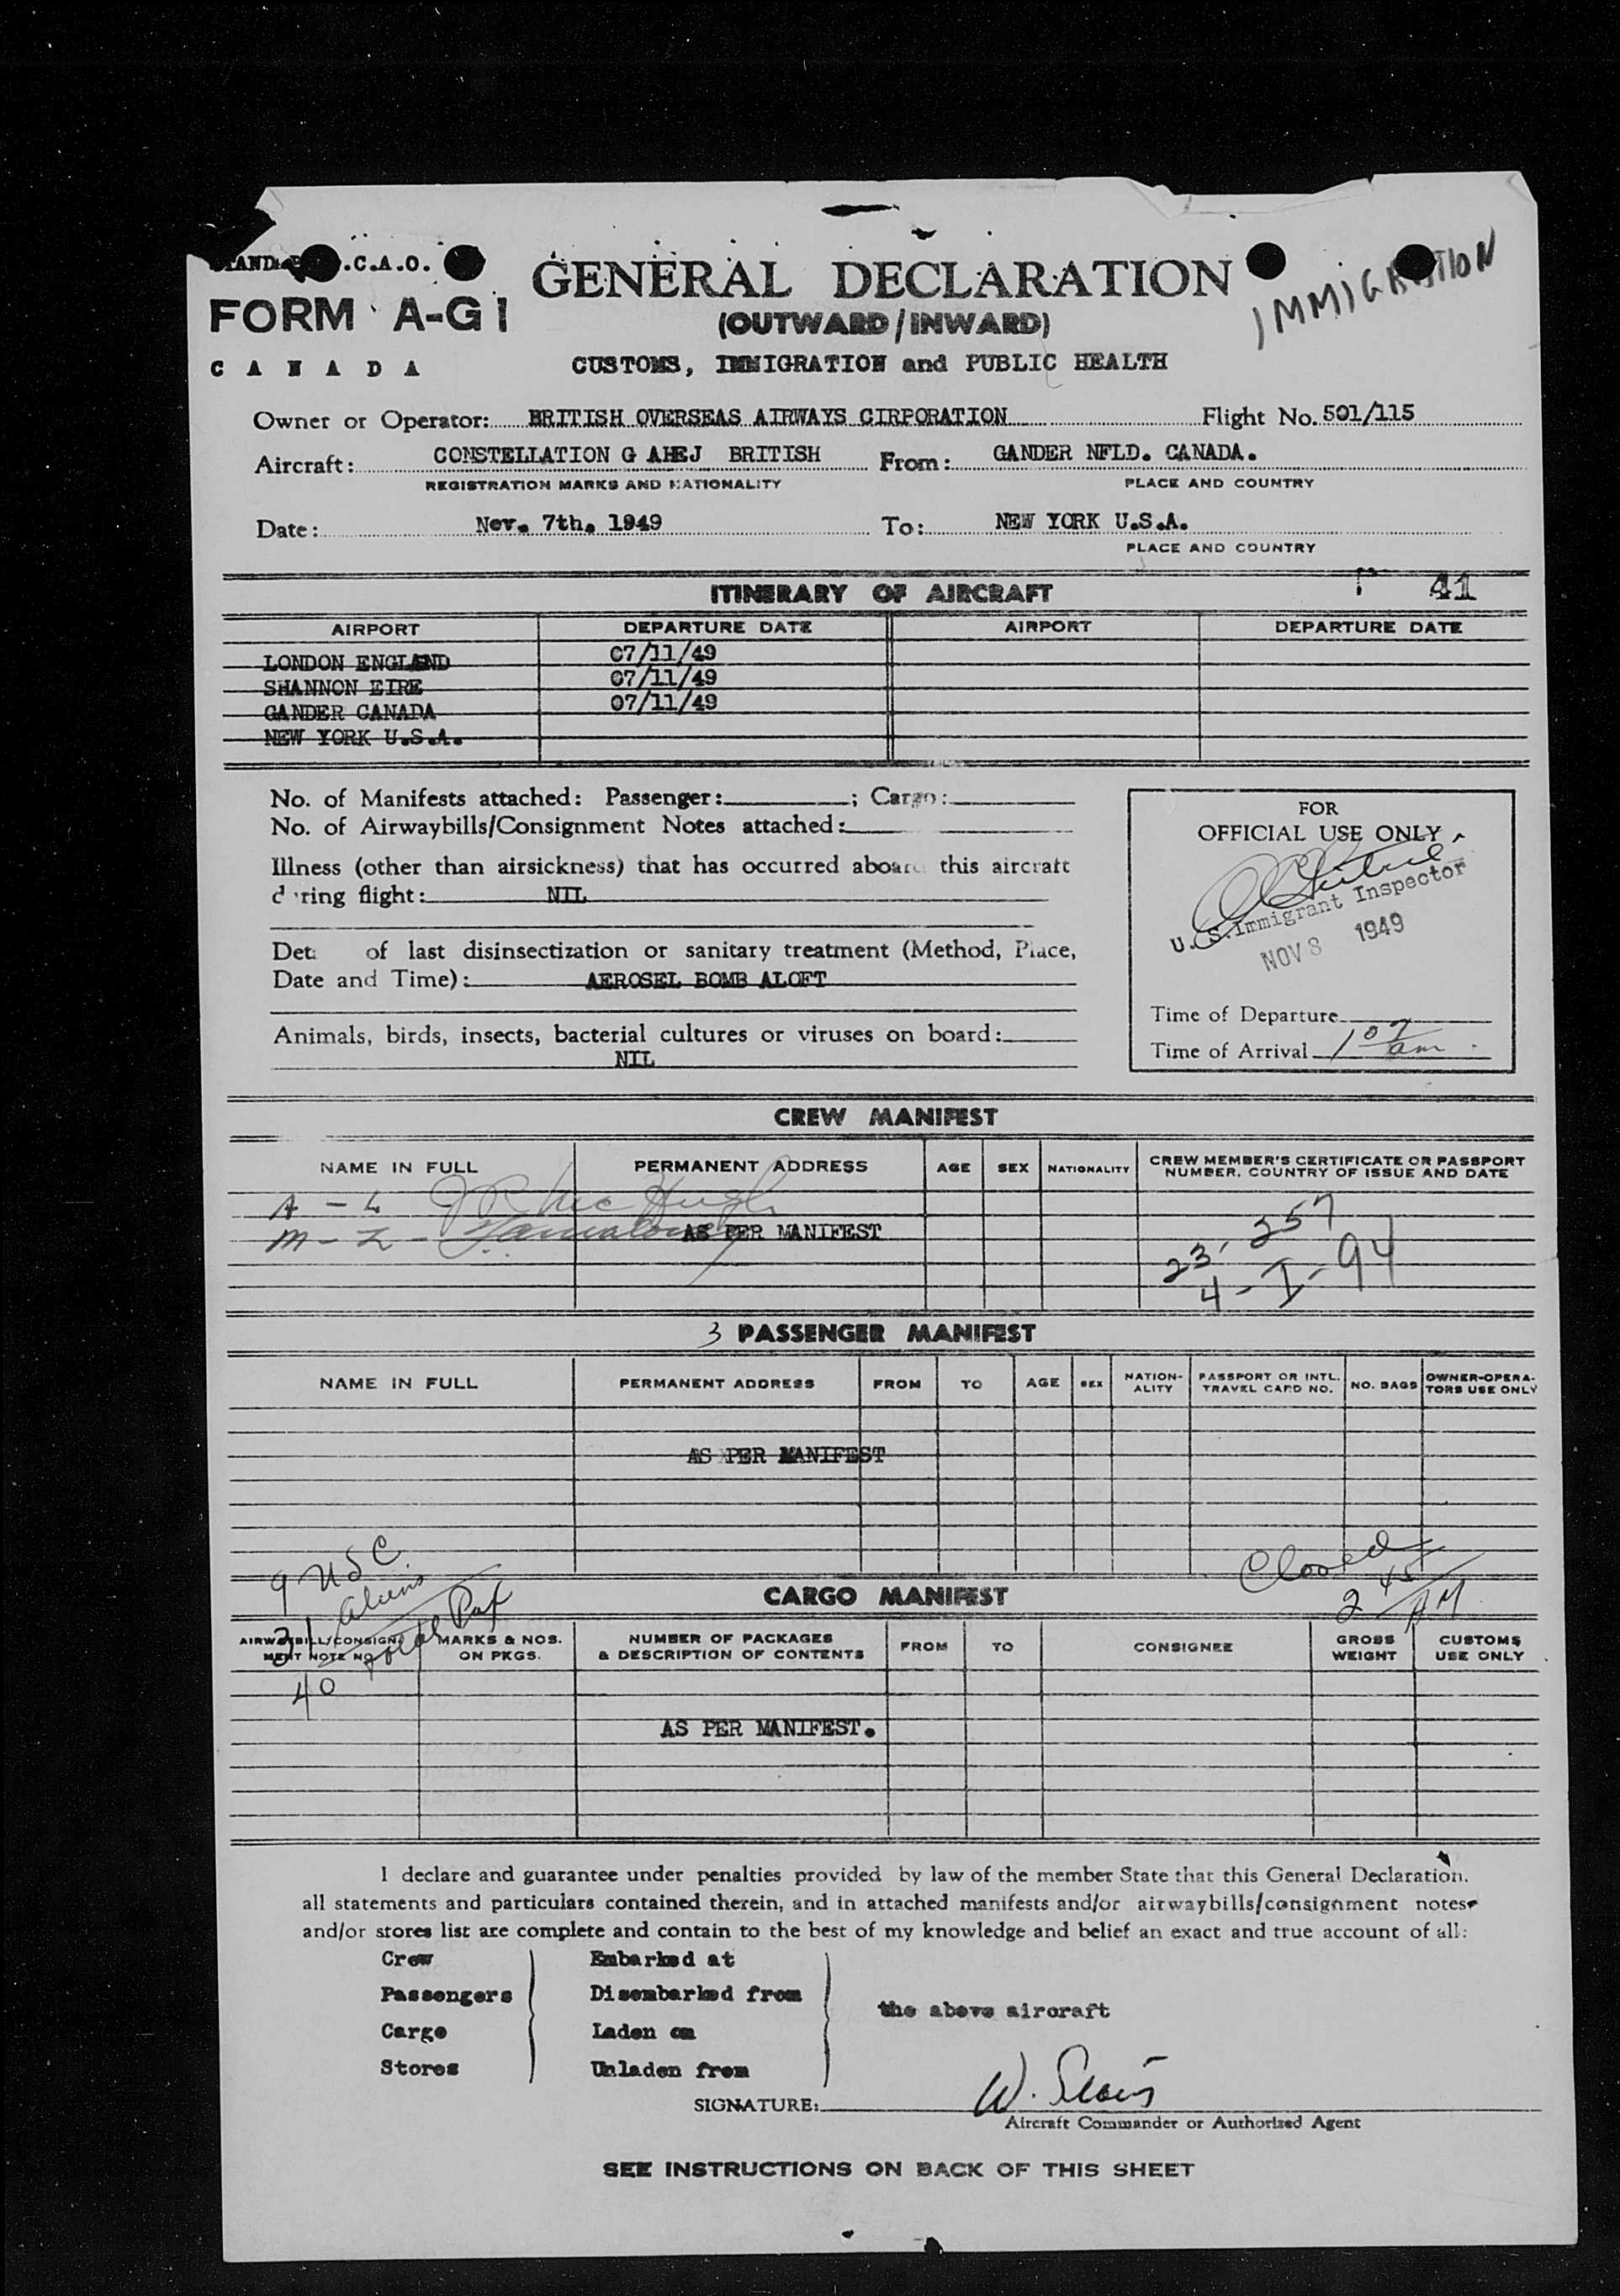 .C.A.O.
FORM A-G1
CANADA
GENERAL DECLARATION
(OUTWARD/INWARD)
CUSTOMS, IMMIGRATION and PUBLIC HEALTH
IMMIGRATION
Owner or Operator: BRITISH OVERSEAS AIRWAYS CIRPORATION Flight No. 501/115
Aircraft: CONSTELLATION G AHEJ BRITISH From: GANDER NFLD. CANADA.
REGISTRATION MARKS AND NATIONALITY PLACE AND COUNTRY
Date: Nov. 7th. 1949 To: NEW YORK U.S.A.
PLACE AND COUNTRY
ITINERARY OF AIRCRAFT 41
AIRPORT DEPARTURE DATE AIRPORT DEPARTURE DATE
LONDON ENGLAND 07/11/49
SHANNON EIRE 07/11/49
GANDER CANADA 07/11/49
NEW YORK U.S.A.
No. of Manifests attached: Passenger: ; Cargo:
No. of Airwaybills/Consignment Notes attached:
Illness (other than airsickness) that has occurred aboard this aircraft
during flight: NIL
of last disinsectization or sanitary treatment (Method, Place,
Date and Time): AEROSEL BOMB ALOFT
Animals, birds, insects, bacterial cultures or viruses on board:
NIL
FOR
OFFICIAL USE ONLY
U. S. Immigrant Inspector
NOV 8 1949
Time of Departure
Time of Arrival 1 07 am
CREW MANIFEST
NAME IN FULL PERMANENT ADDRESS AGE SEX NATIONALITY CREW MEMBER'S CERTIFICATE OR PASSPORT NUMBER, COUNTRY OF ISSUE AND DATE
A - L
M - Z -
AS PER MANIFEST
23-257
4-I-94
3 PASSENGER MANIFEST
NAME IN FULL PERMANENT ADDRESS FROM TO AGE SEX NATION-ALITY PASSPORT OR INTL. TRAVEL CARD NO. NO. BAGS OWNER-OPERA-TORS USE ONLY
AS PER MANIFEST
9 USC
31 Aliens
40 total Pax
Closed
2 45 AM
CARGO MANIFEST
AIRWAYBILL/CONSIGN-MENT NOTE NO. MARKS & NOS. ON PKGS. NUMBER OF PACKAGES & DESCRIPTION OF CONTENTS FROM TO CONSIGNEE GROSS WEIGHT CUSTOMS USE ONLY
AS PER MANIFEST.
I declare and guarantee under penalties provided by law of the member State that this General Declaration.
all statements and particulars contained therein, and in attached manifests and/or airwaybills/consignment notes
and/or stores list are complete and contain to the best of my knowledge and belief an exact and true account of all:
Crew Embarked at
Passengers Disembarked from
the above aircraft
Cargo Laden on
Stores Unladen from
SIGNATURE: W.
Aircraft Commander or Authorized Agent
SEE INSTRUCTIONS ON BACK OF THIS SHEET